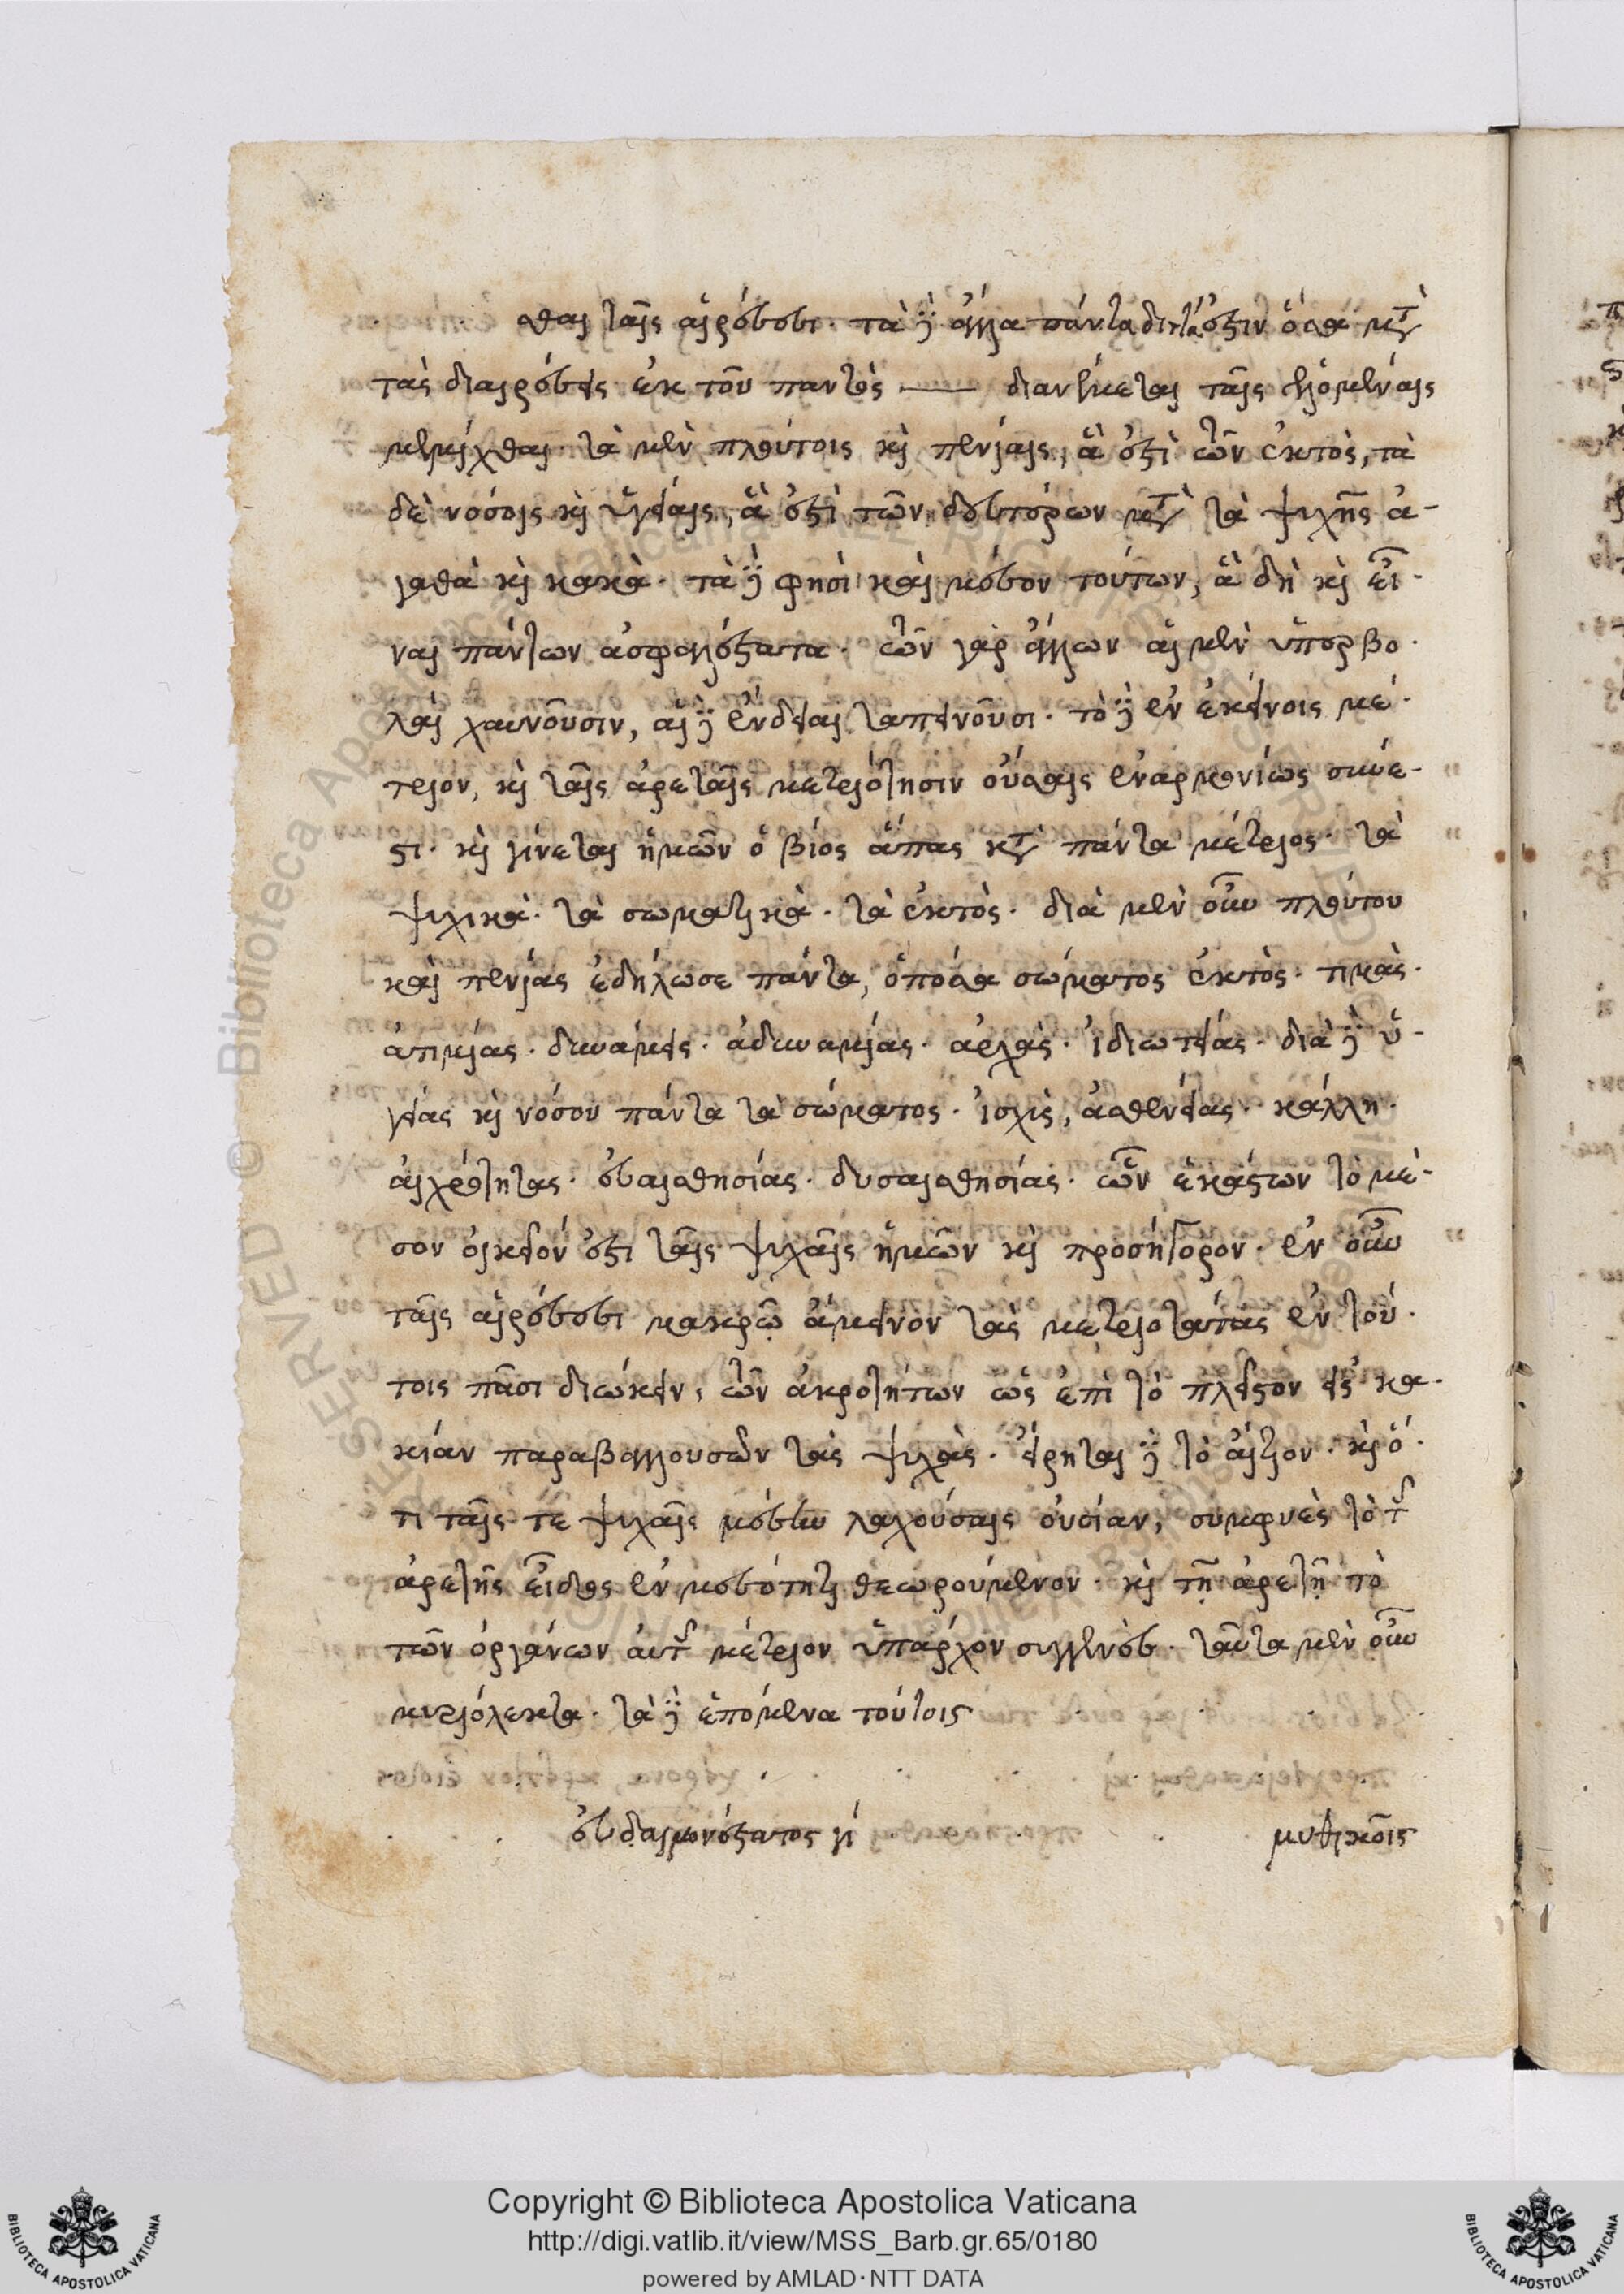 σθαι ταῖς αἱρέσεσι· τὰ δὲ ἄλλα πάντα διττά ἐστιν ὅσα κατὰ
τὰς διαιρέσεις ἐκ τοῦ παντὸς —— διαντίκεται ταῖς
μεμίχθαι· τὰ μὲν πλούτοις καὶ πενίαις, ἃ ἐστὶ τῶν ἐκτὸς, τὰ
δὲ νόσοις καὶ ὑγείαις, ἃ ἐστὶ τῶν δευτέρων μετὰ τὰ ψυχῆς ἀ-
γαθὰ καὶ κακὰ· τὰ δὲ φησὶ καὶ μέσον τούτων, ἃ δὴ καὶ εἶ-
ναι πάντων ἀσφαλέστατα· τῶν γὰρ ἄλλων αἱ μὲν ὑπερβο-
λαὶ χαυνοῦσιν, αἱ δὲ ἔνδειαι ταπεινοῦσι· τὸ δὲ ἐν ἐκείνοις μέ-
τριον, καὶ ταῖς ἀρεταῖς μετριότησιν οὔσαις ἐναρμονίως σύνε-
στι· καὶ γίνεται ἡμῶν ὁ βίος ἅπας κατὰ πάντα μέτριος· τὰ
ψυχικὰ· τὰ σωματικὰ· τὰ ἐκτὸς· διὰ μὲν οὖν πλούτου
καὶ πενίας ἐδήλωσε πάντα, ὁπόσα σώματος ἐκτὸς· τιμὰς·
ἀτιμίας· δυνάμεις· ἀδυναμίας· ἀρχὰς· ἰδιωτείας· διὰ δὲ ὑ-
γείας καὶ νόσου πάντα τὰ σώματος· ἰσχὺς, ἀσθενείας· κάλλη·
αἰχρότητας· εὐαισθησίας· δυσαισθησίας· ὧν ἑκάστων τὸ μέ-
σον οἰκεῖόν ἐστι ταῖς ψυχαῖς ἡμῶν καὶ προσήγορον· ἐν οὖν
ταῖς αἱρέσεσι μακρῷ ἄμεινον τὰς μετριοτάτας ἐν τού-
τοις πᾶσι διώκειν, τῶν ἀκροτήτων ὡς ἐπὶ τὸ πλεῖστον εἰς κα-
κίαν παραβαλλουσῶν τὰς ψυχὰς· εἴρηται δὲ τὸ αἴτιον· καὶ ὅ-
τι ταῖς τε ψυχαῖς μέσην λαχούσαις οὐσίαν, συμφυὲς τὸ τῆς
ἀρετῆς εἶδος ἐν μεσότητι θεωρούμενον· καὶ τῇ ἀρετῇ τὸ
τῶν ὀργάνων αὐτῆς μέτριον ὑπάρχον συγγενὲς· ταῦτα μὲν οὖν
κυριόλεκτα· τὰ δὲ ἑπόμενα τούτοις
εὐδαιμονέστατος γί μυθικοῖς
Copyright © Biblioteca Apostolica Vaticana
http://digi.vatlib.it/view/MSS_Barb.gr.65/0180
powered by AMLAD·NTT DATA